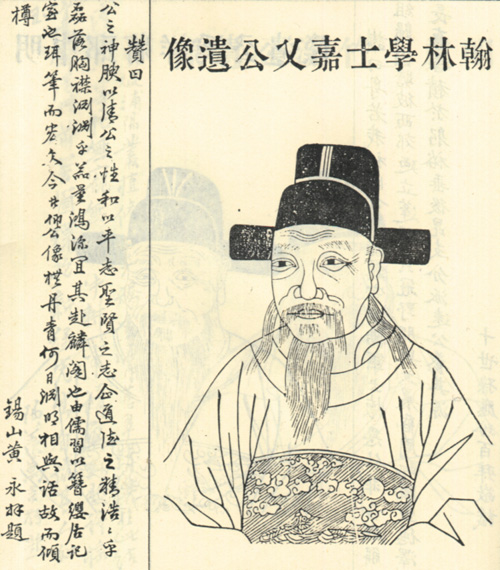 翰林學士嘉乂公遺像
贊曰
公之神腴以清公之性和以平志聖賢之志道之精浩〻乎
磊落胸襟淵淵乎器量鴻深宜其赴麟閣也由儒習以簪纓居記
室也珥筆而今公像丹青何日淵明相與話故而傾
樽
錫山黃永題